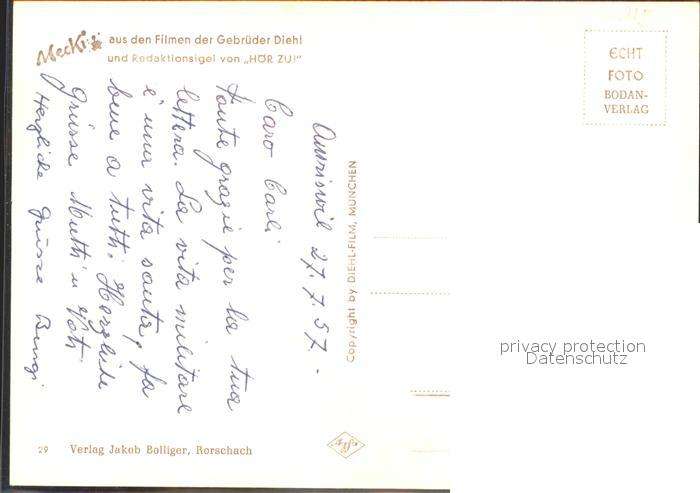 Mecki aus den Filmen der Gebrüder Diehl
und Redaktionsigel von „HÖR ZU!"
ECHT
FOTO
BODAN-
VERLAG
27.7.57.-
Caro Carli
tante grazie per la tua
lettera. La vita militare
è una vita santa, fa
bene a tutti. Herzliche
Grüsse Mutti u Vati
Herzliche Grüsse
Copyright by DIEHL-FILM, MÜNCHEN
privacy protection
Datenschutz
29 Verlag Jakob Bolliger, Rorschach
Agfa